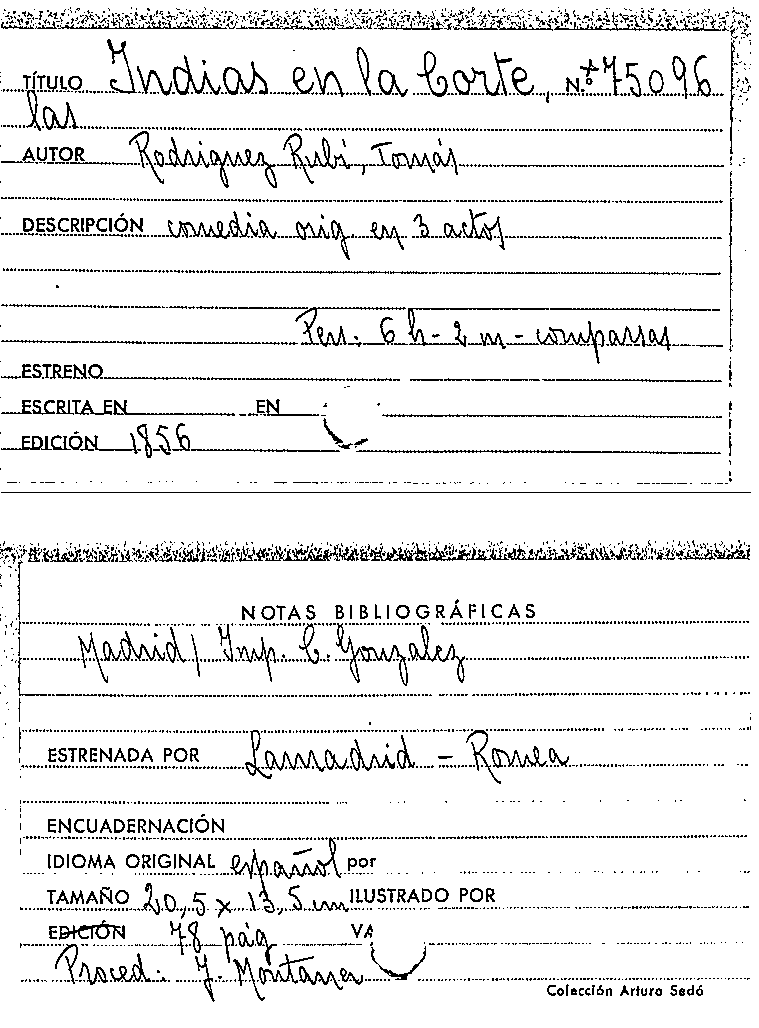 TÍTULO Indias en la Corte, N.º 75096
las
AUTOR Rodriguez Rubí, Tomás
DESCRIPCIÓN comedia orig. en 3 actos
Pers: 6 h - 2 m - comparsas
ESTRENO
ESCRITA EN EN
EDICIÓN 1856
NOTAS BIBLIOGRÁFICAS
Madrid / Imp. C. Gonzalez
ESTRENADA POR Lamadrid - Romea
ENCUADERNACIÓN
IDIOMA ORIGINAL español por
TAMAÑO 20,5 x 13,5 cm ILUSTRADO POR
EDICIÓN 78 pág VA
Proced: J. Montaner
Colección Arturo Sedó